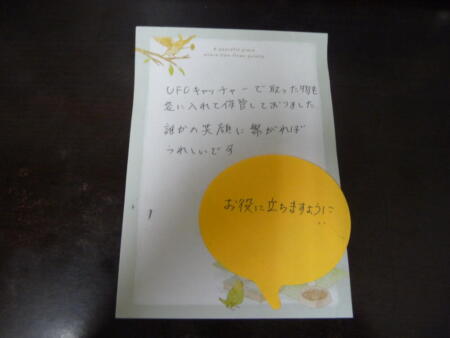 A peaceful place
where time flows gently
UFOキャッチャーで取った物を
袋に入れて保管しておりました
誰かの笑顔に繋がれば
うれしいです
お役に立ちますように